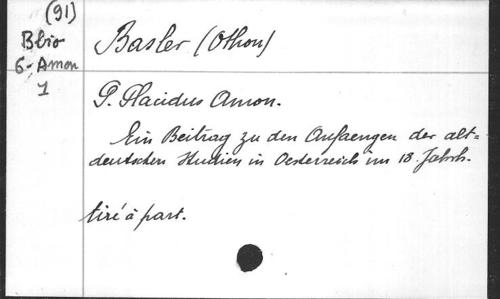 (91)
Bbio
6-Amon
1
Basler (Othon)
P. Placidus Amon.
Ein Beitrag zu den Anfaengen der alt=
deutschen Studien in Oesterreich im 18. Jahrh.
tiré à part.